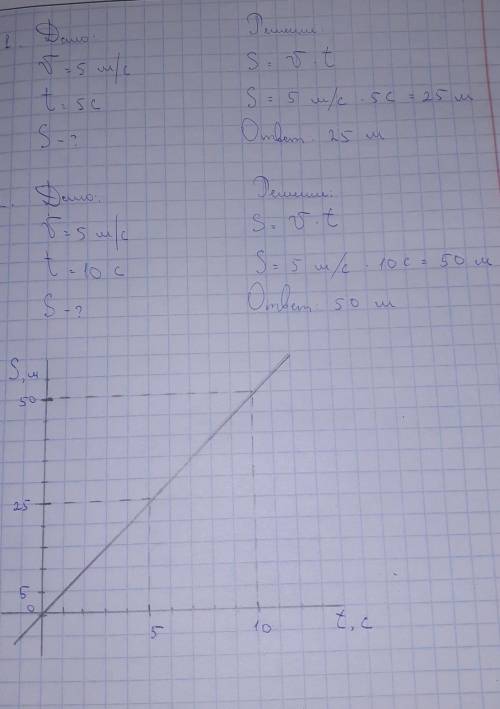 1. Дано: Решение:
v = 5 м/с S = v · t
t = 5 с S = 5 м/с · 5 с = 25 м
S - ? Ответ: 25 м
Дано: Решение:
v = 5 м/с S = v · t
t = 10 с S = 5 м/с · 10 с = 50 м
S - ? Ответ: 50 м
S, м
50
25
5
0
5 10 t, с